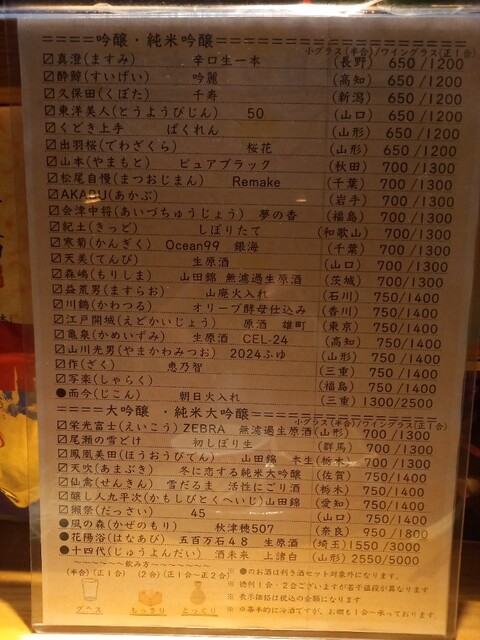 ====吟醸・純米吟醸====================
小グラス(半合)/ワイングラス(正1合)
〼真澄(ますみ) 辛口生一本 (長野) 650/1200
〼酔鯨(すいげい) 吟麗 (高知) 650/1200
〼久保田(くぼた) 千寿 (新潟) 650/1200
〼東洋美人(とうようびじん) 50 (山口) 650/1200
〼くどき上手 ばくれん (山形) 650/1200
〼出羽桜(でわざくら) 桜花 (山形) 650/1200
〼山本(やまもと) ピュアブラック (秋田) 700/1300
〼松尾自慢(まつおじまん) Remake (千葉) 700/1300
〼AKABU(あかぶ) (岩手) 700/1300
〼会津中将(あいづちゅうじょう) 夢の香 (福島) 700/1300
〼紀土(きっど) しぼりたて (和歌山) 700/1300
〼寒菊(かんぎく) Ocean99 銀海 (千葉) 700/1300
〼天美(てんび) 生原酒 (山口) 700/1300
〼森嶋(もりしま) 山田錦 無濾過生原酒 (茨城) 700/1300
〼益荒男(ますらお) 山廃火入れ (石川) 750/1400
〼川鶴(かわつる) オリーブ酵母仕込み (香川) 750/1400
〼江戸開城(えどかいじょう) 原酒 雄町 (東京) 750/1400
〼亀泉(かめいずみ) 生原酒 CEL-24 (高知) 750/1400
〼山川光男(やまかわみつお) 2024ふゆ (山形) 750/1400
〼作(ざく) 恵乃智 (三重) 750/1400
〼写楽(しゃらく) (福島) 750/1400
●而今(じこん) 朝日火入れ (三重) 1300/2500
==大吟醸・純米大吟醸==================
小グラス(半合)/ワイングラス(正1合)
〼栄光富士(えいこう) ZEBRA 無濾過生原酒(山形) 700/1300
〼尾瀬の雪どけ 初しぼり生 (群馬) 700/1300
〼鳳凰美田(ほうおうびでん) 山田錦 本生(栃木) 700/1300
〼天吹(あまぶき) 冬に恋する純米大吟醸 (佐賀) 750/1400
〼仙禽(せんきん) 雪だるま 活性にごり酒 (栃木) 750/1400
〼醸し人九平次(かもしびとくへいじ)山田錦 (愛知) 750/1400
〼獺祭(だっさい) 45 (山口) 750/1400
●風の森(かぜのもり) 秋津穂507 (奈良) 950/1800
●花陽浴(はなあび) 五百万石48 生原酒 (埼玉)1550/3000
●十四代(じゅうよんだい) 酒未来 上諸白 (山形) 2550/5000
~~~~~~飲み方~~~~~~
(半合)(正1合) (2合)(正1合~正2合)
グラス もっきり とっくり
※ ●のお酒は利き酒セット対象外になります。
※ 徳利1合・2合ございますが若干値段が異なります
※ 表示価格は税込の金額になります。
※ ※基本的に冷酒ですが、お燗も1合~承っております。